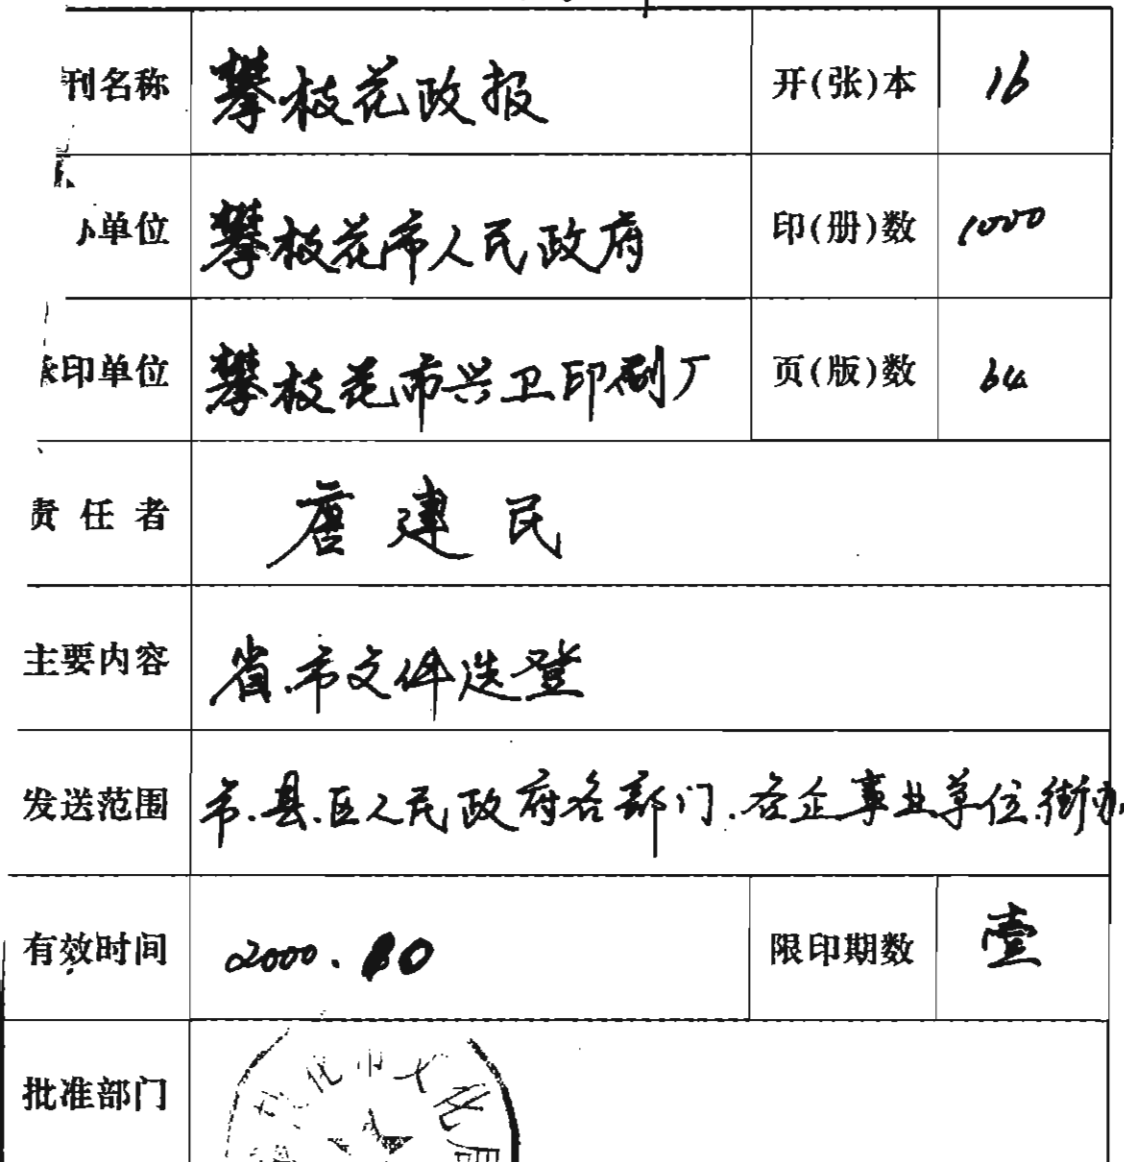 刊名称 攀枝花政报 开(张)本 16
单位 攀枝花市人民政府 印(册)数 1000
印单位 攀枝花市兴卫印刷厂 页(版)数 64
责任者 唐建民
主要内容 省.市文件选登
发送范围 市.县.区人民政府各部门.各企事业单位.街办
有效时间 2000.10 限印期数 壹
批准部门
枝花市文化局